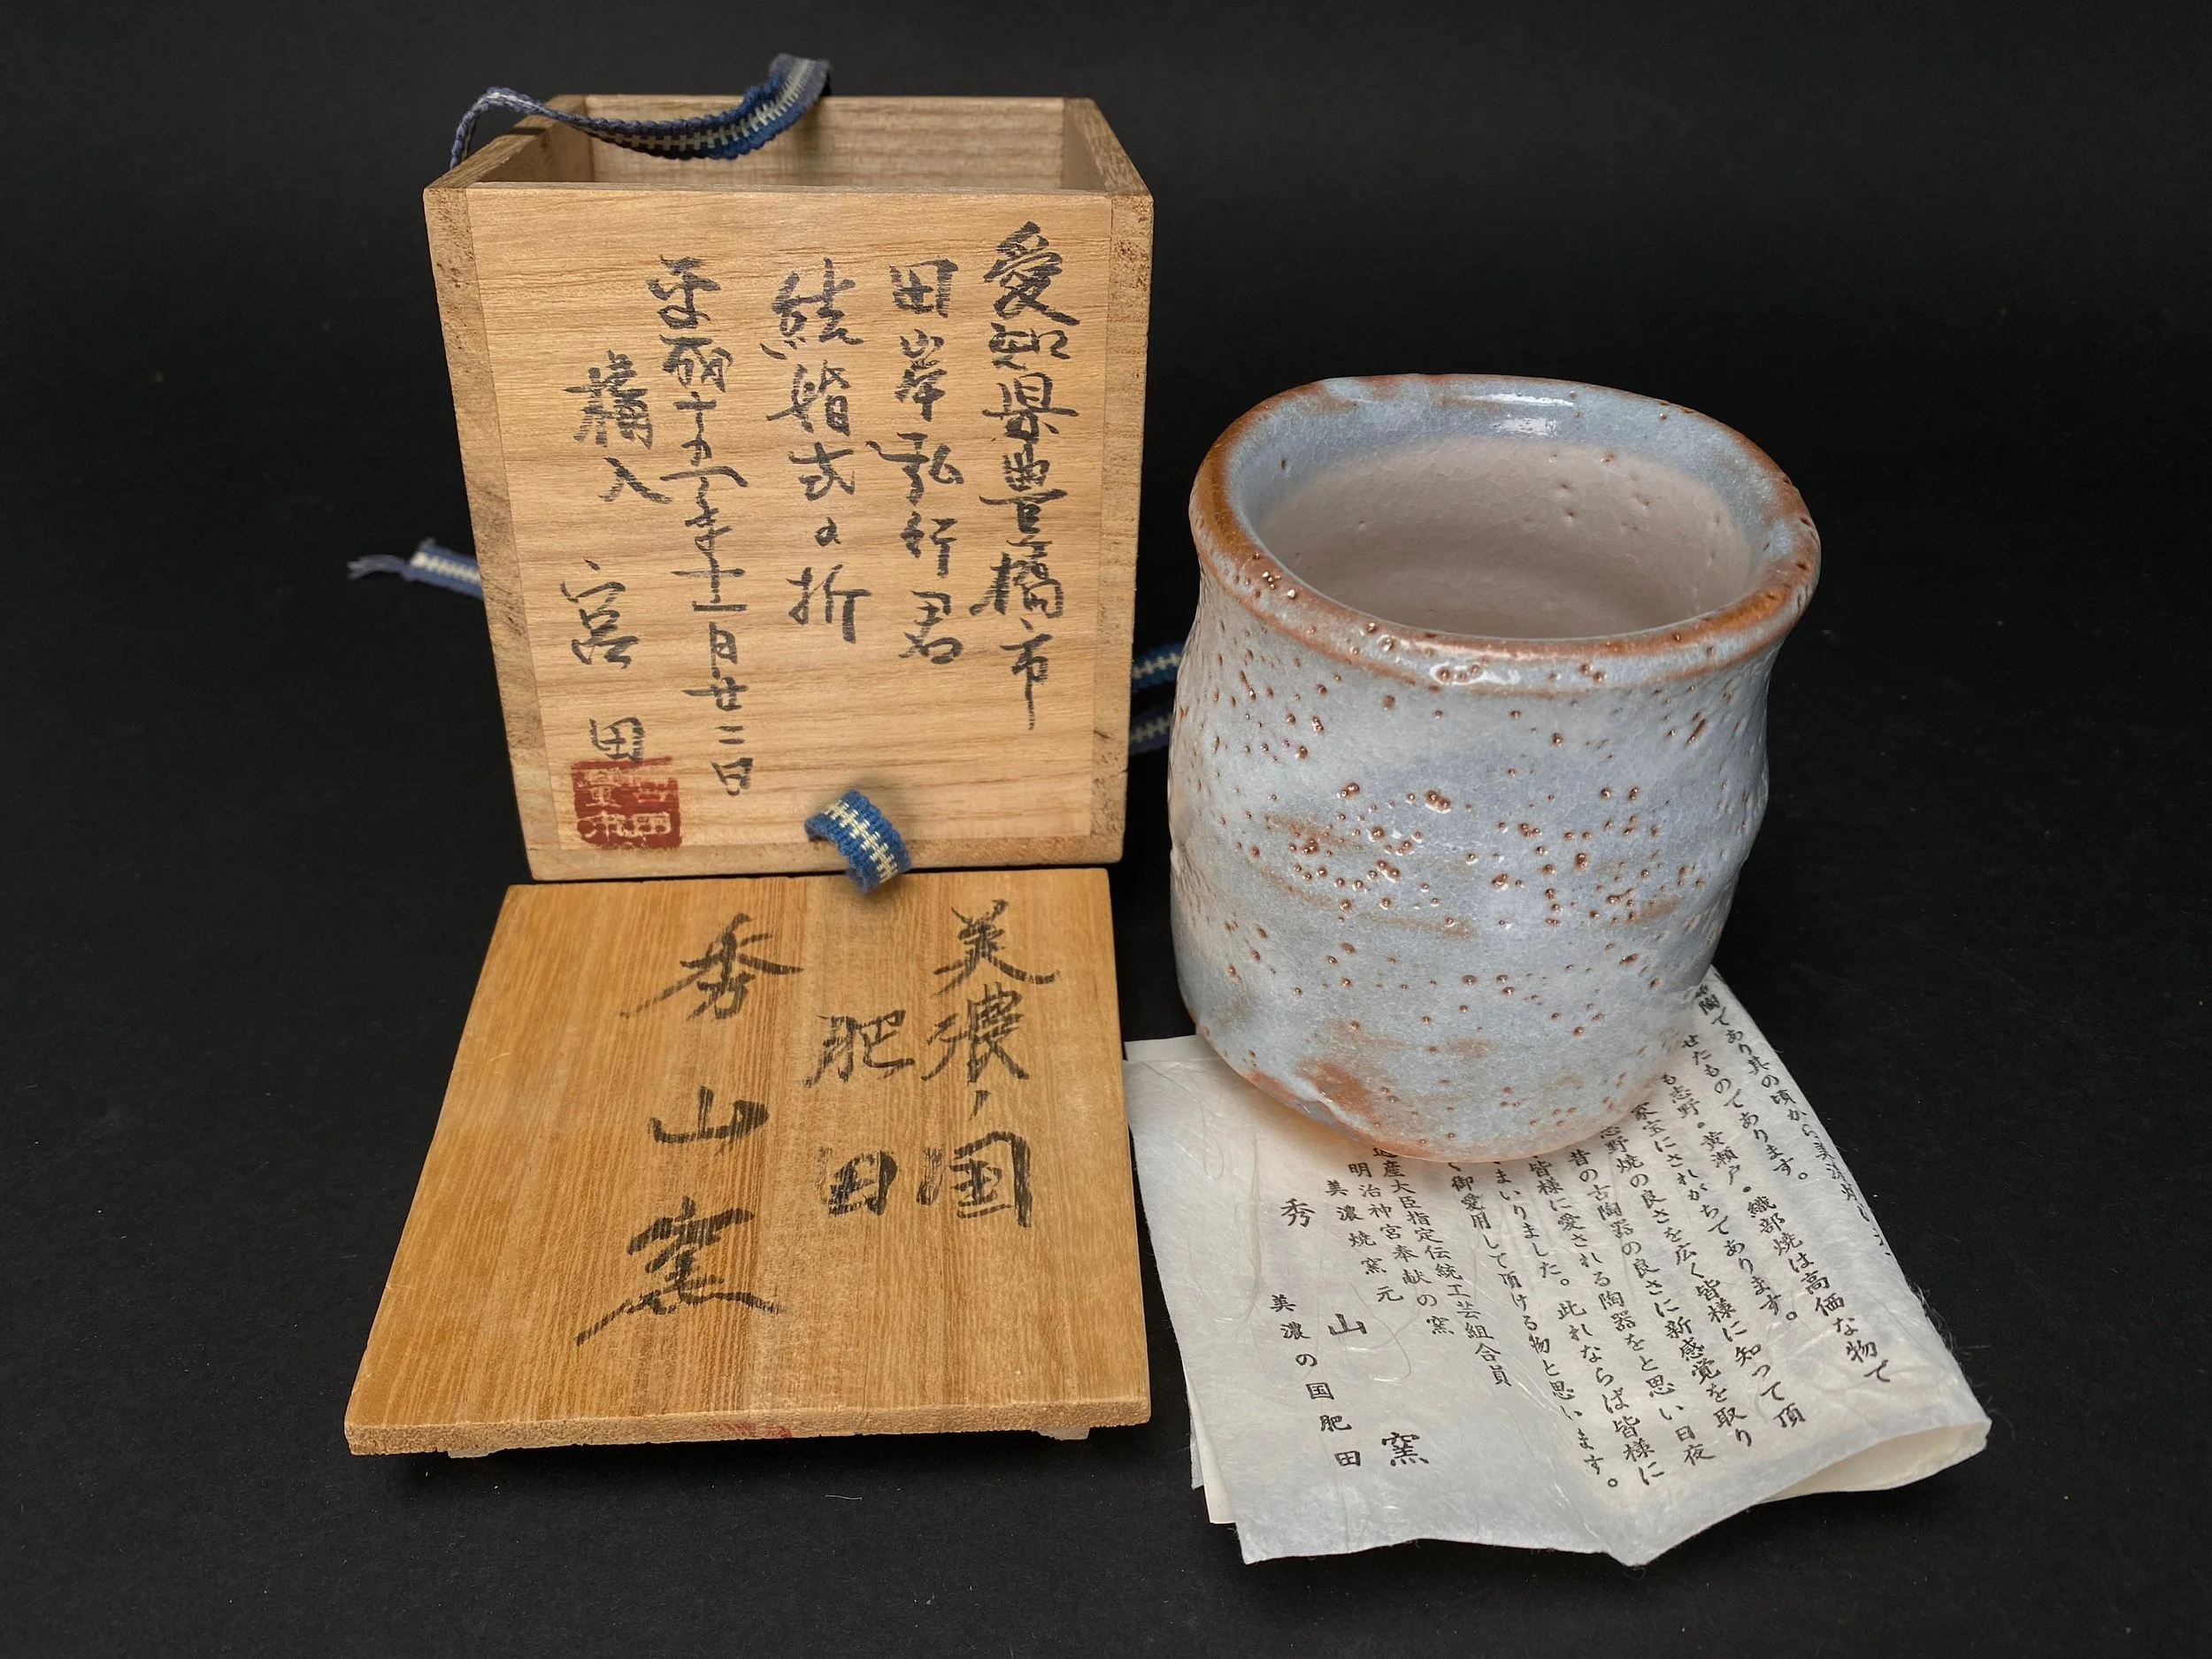 愛知県豊橋市
田岸弘行君
結婚式の折
平成十五年十一月廿二日
購入
宮田
宮田
美濃ノ国
肥田
秀山窯
陶であり其の頃から美濃焼
せたものであります。
も志野・黄瀬戸・織部焼は高価な物で
家宝にされがちであります。
志野焼の良さを広く皆様に知って頂
昔の古陶器の良さに新感覚を取り
皆様に愛される陶器をと思い日夜
まいりました。此れならば皆様に
く御愛用して頂ける物と思います。
産大臣指定伝統工芸組合員
明治神宮奉献の窯
美濃焼窯元
秀山窯
美濃の国肥田